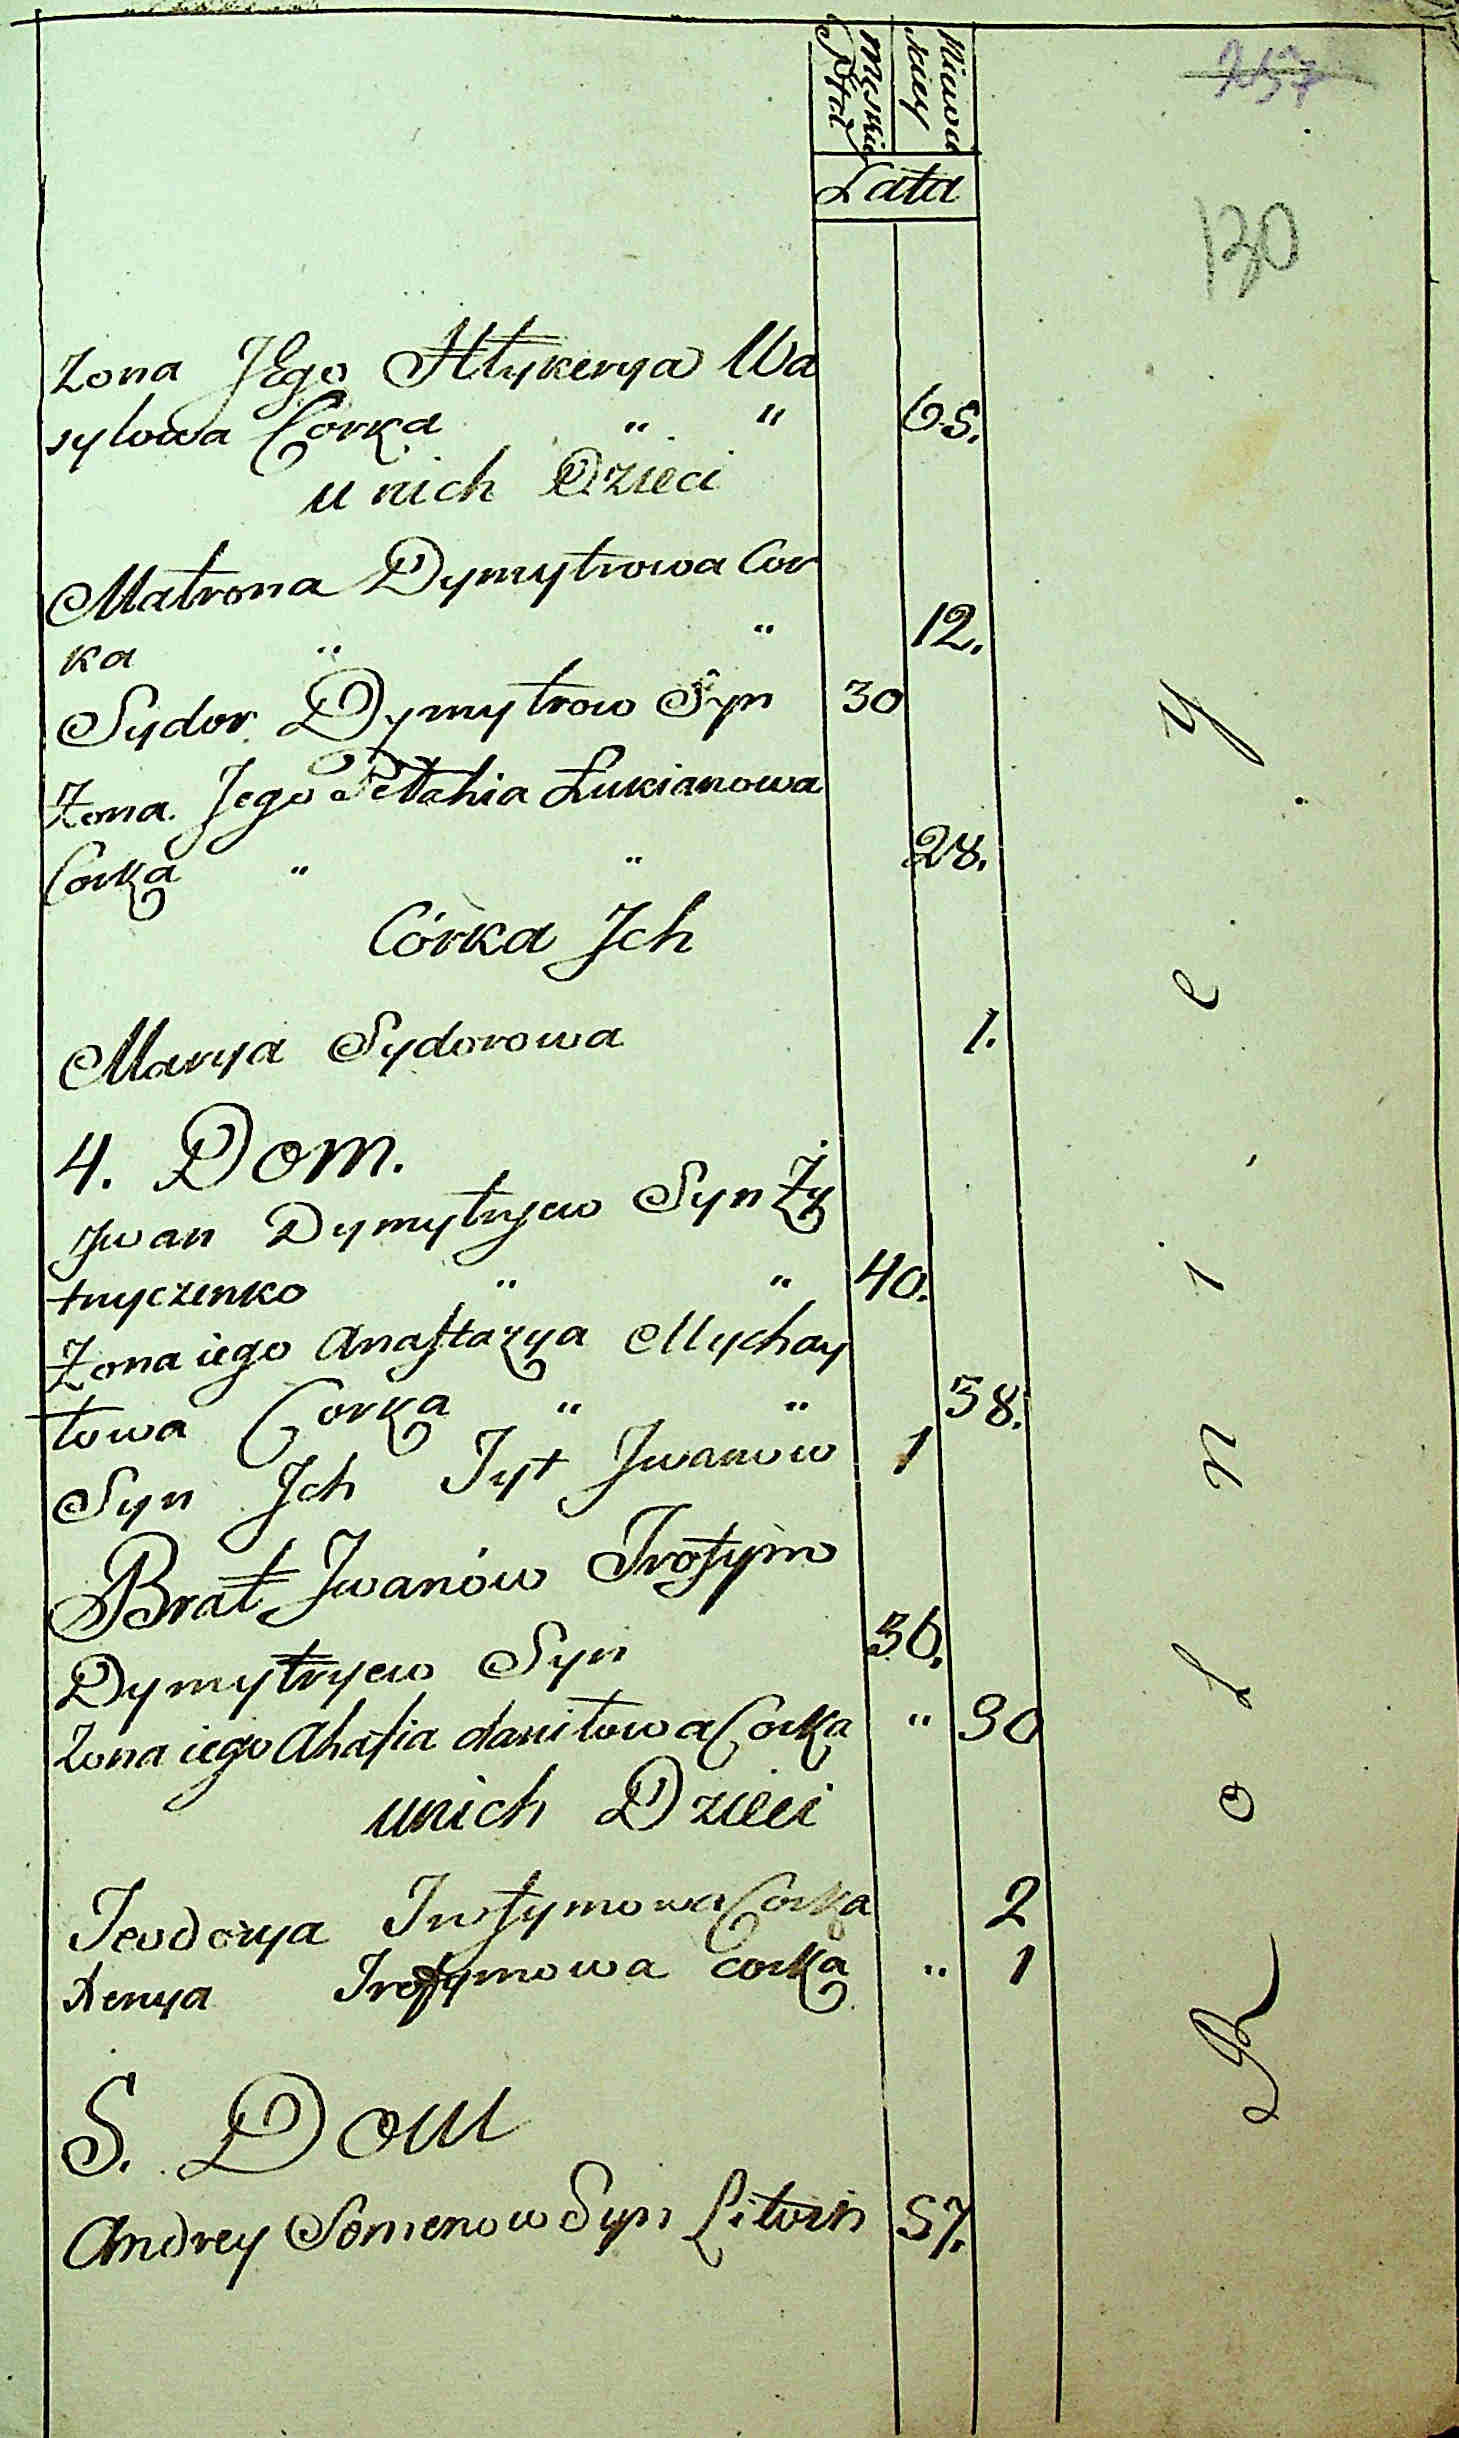 Płeć
Męska
Niewie
ściey
Lata
257
130
Zona Jego Hłykerya Wa
sylowa Corka " " 65.
u nich Dzieci
Matrona Dymytrowa Cor
ka " " 12.
Sydor Dymytrow Syn 30
Zona Jego Pełahia Łukianowa
Corka " " 28.
Córka Jch
Marya Sydorowa 1.
4. Dom.
Jwan Dymytryew Syn Ży
tnyczenko " " 40.
Zona iego Anastazya Mychay
łowa Corka " " 38.
Syn Jch Tyt Jwanow 1
Brat Jwanów Trofym
Dymytryew Syn 36.
Zona iego Ahafia daniłowa Corka " 30
unich Dzieci
Teodorya Trofymowa Corka 2
Xenya Trofymowa corka " 1
5. Dom
Andrey Semenow Syn Litwin 57.
Rolniey